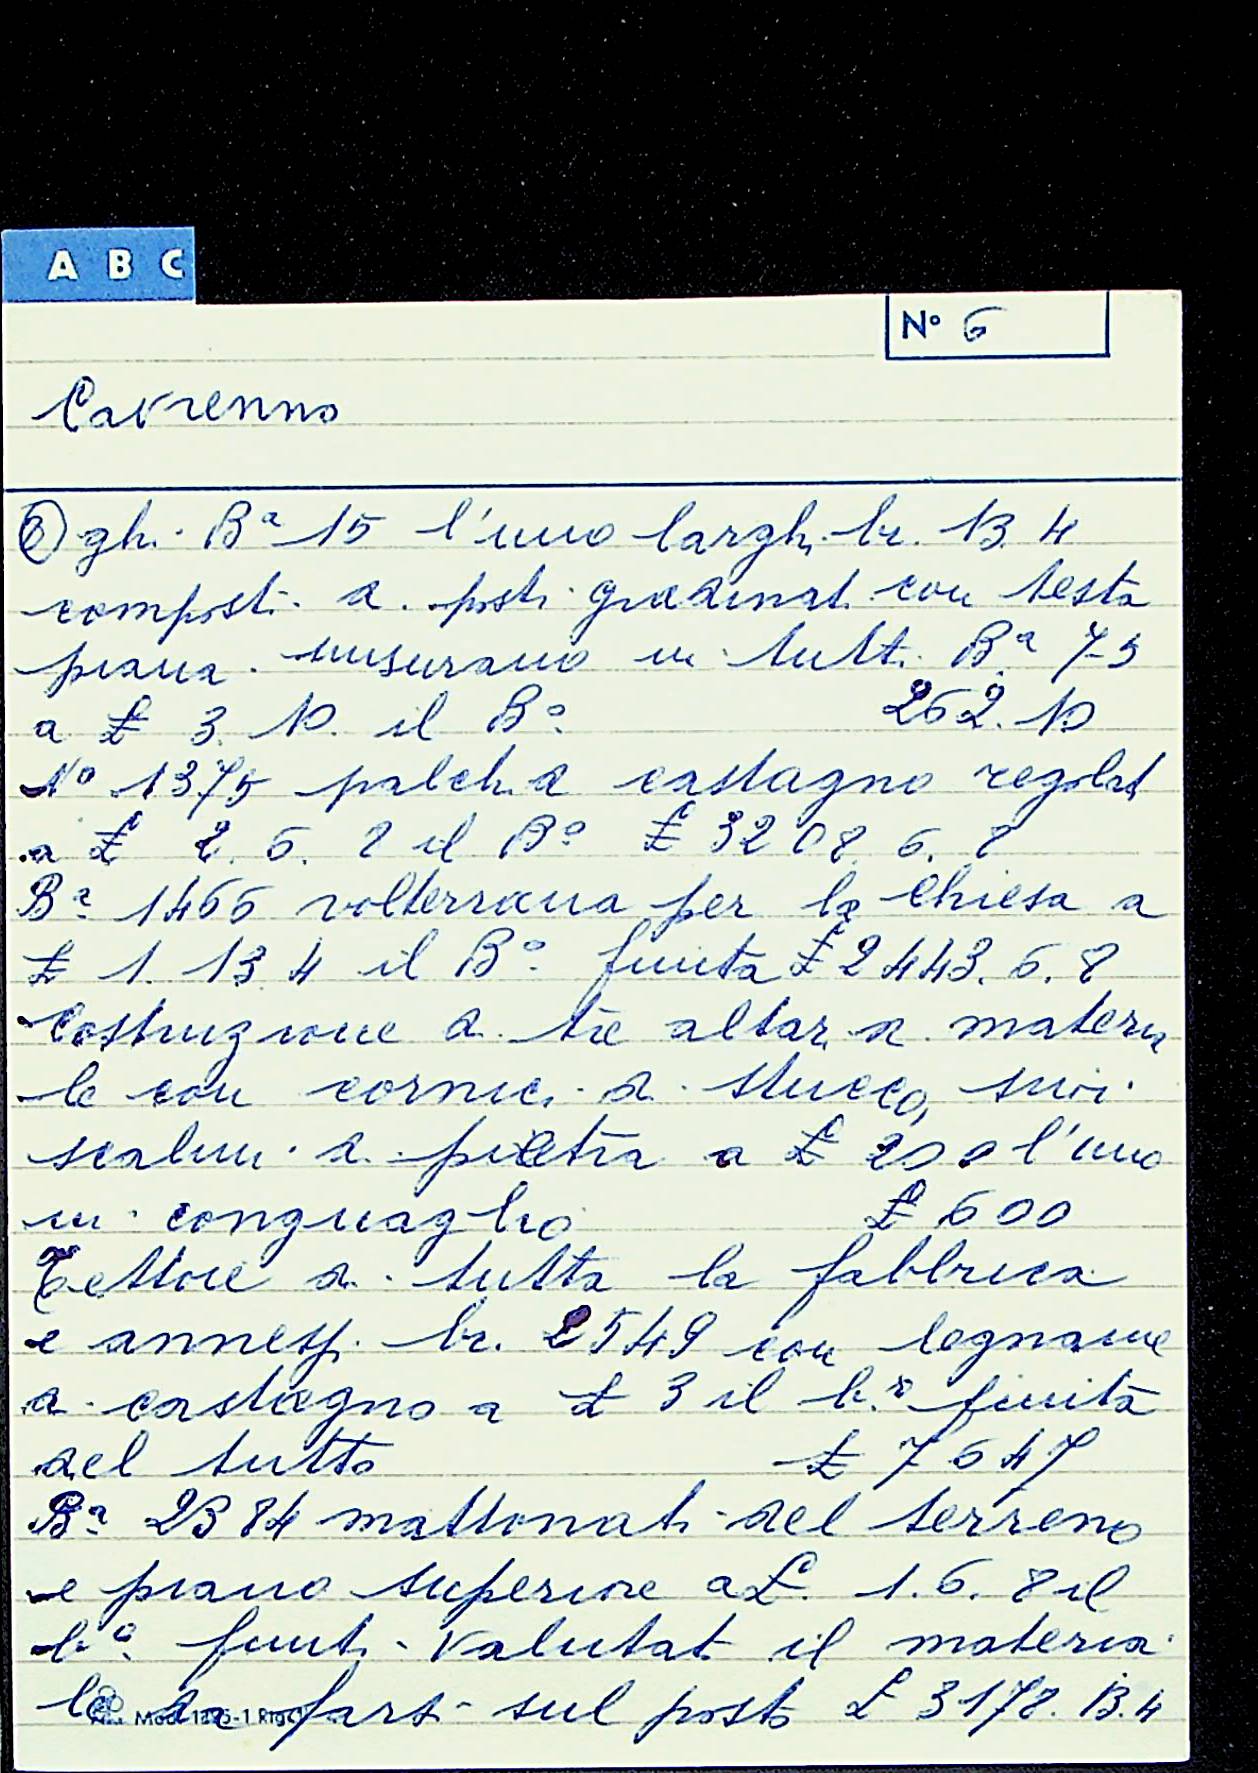 A B C
N° 6
Cavrenno
⑧ ghi Bª 15 l'uno largh. br. 13.4
composti di posti gradinati con testa
piana. misurano in tutti Bª 75
a £ 3. 10. il B° 262.10
N° 1375 palchi di castagno regolati
a £ 2. 6. 8 il B° £ 3208. 6. 8
Bª 1466 volterrana per la chiesa a
£ 1. 13 4 il B° finita £ 2443. 6. 8
Costruzione di tre altari di materia
le con cornici di stucco, suoi
scalini di pietra a £ 200 l'uno
in conguaglio £ 600
Tettoie di tutta la fabbrica
e annessi br. 2549 con legname
di castagno a £ 3 il b.° finita
del tutto £ 7647
Bª 2384 mattonati del terreno
e piano superiore a £. 1. 6. 8 il
b° finiti. Valutati il materia
le da farsi sul posto £ 3178. 13.4